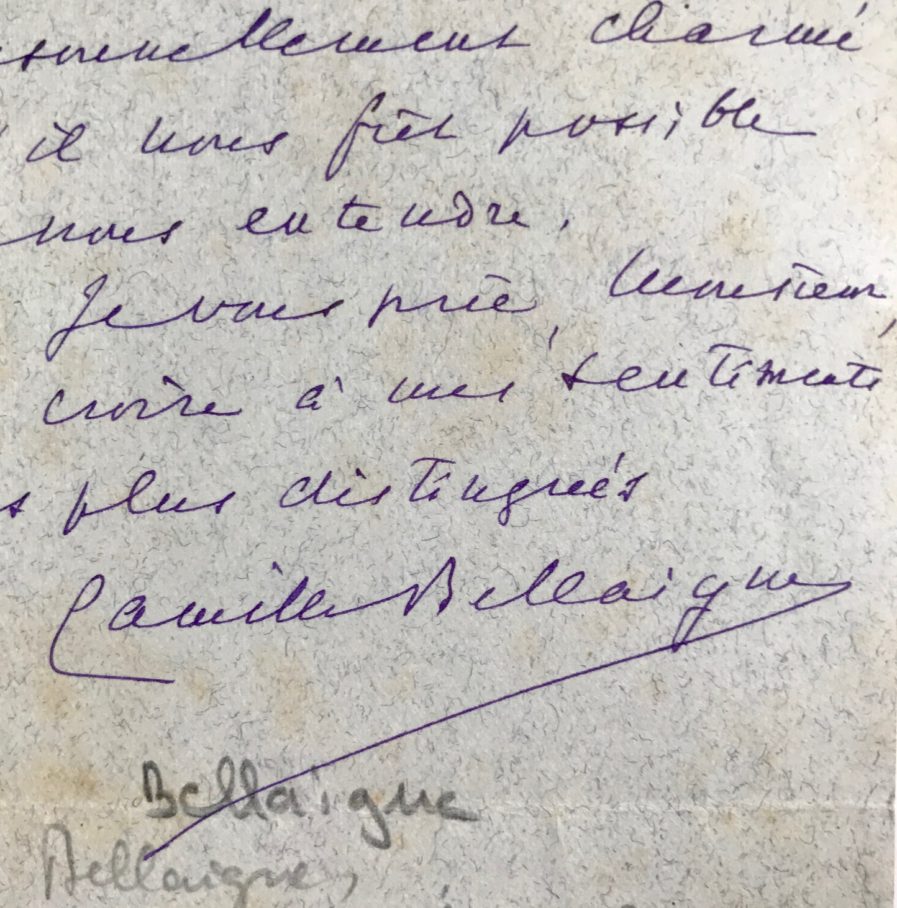 sonnellement charmé
il nous fût possible
nous entendre.
Je vous prie, Monsieur,
croire à mes sentiments
s plus distingués
Camille Bellaigue
Bellaigue
Bellaigue,